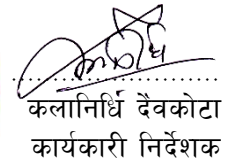 कलानिधि दैवकोटा
कार्यकारी निर्देशक